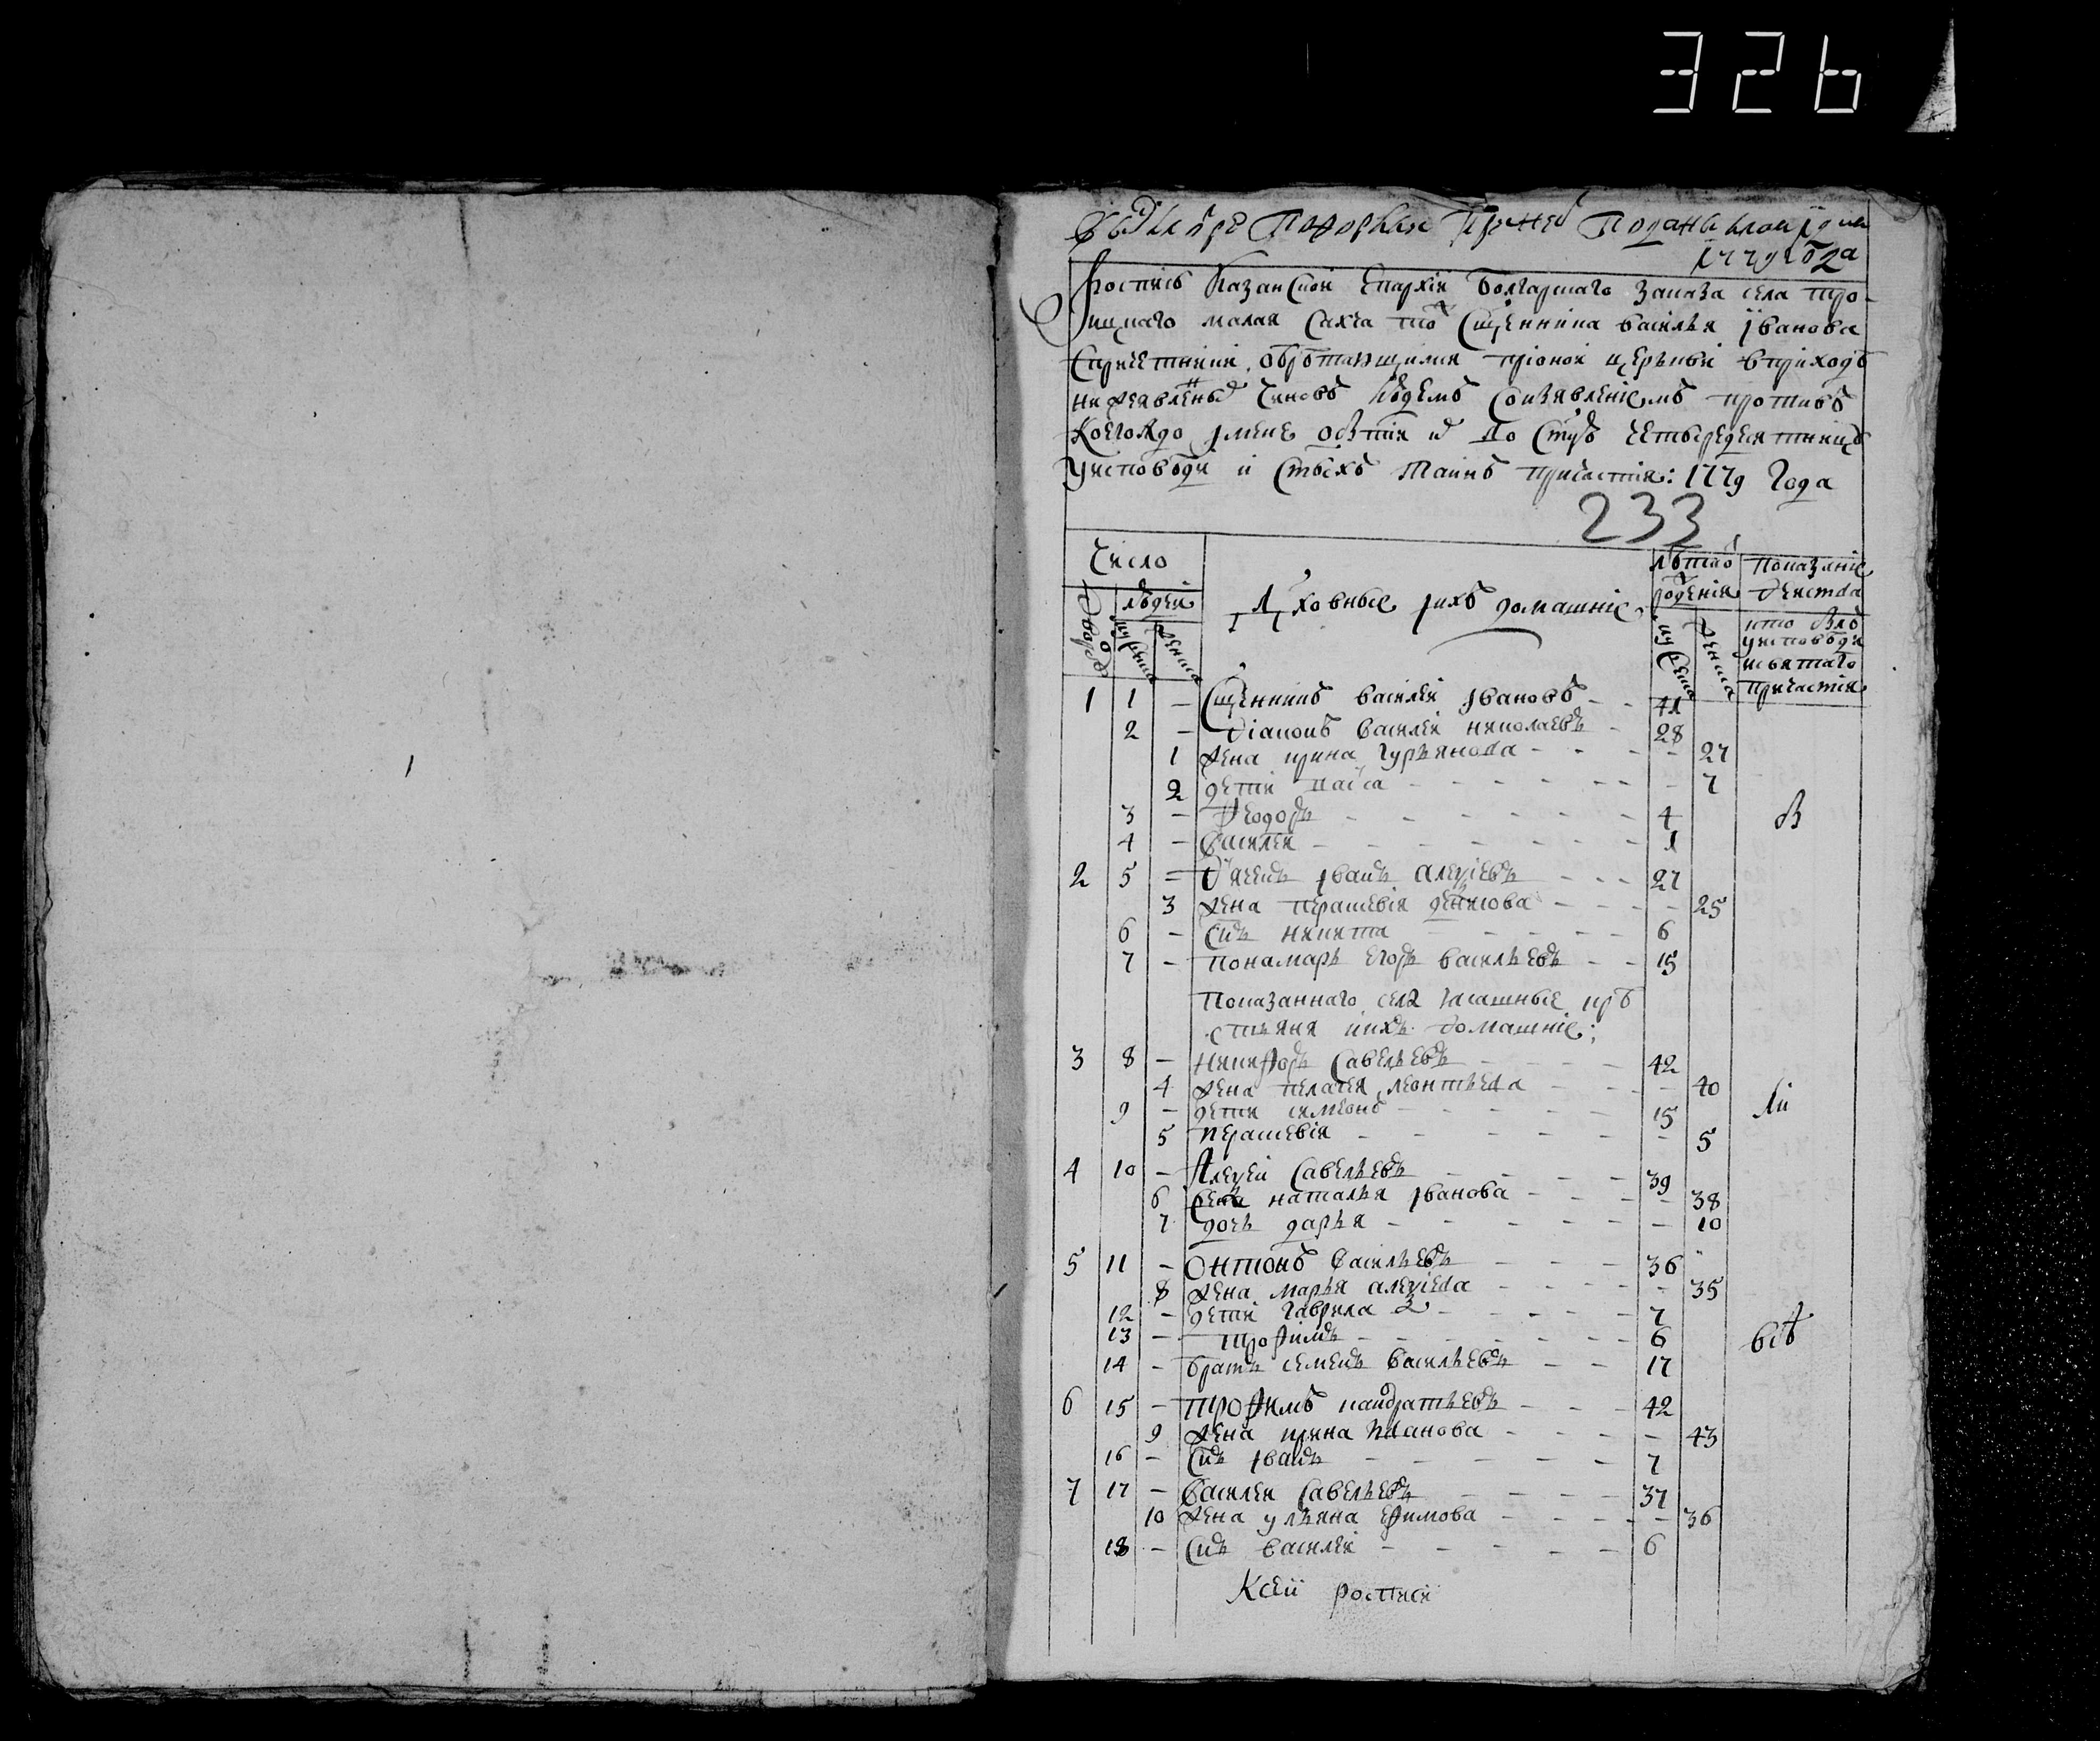 326
подана
1779 года
Роспись Казанской Епархіи Болгарскаго заказа села Тро-
ицкаго малая Сахча тож Сщенника Василья Іванова
Спричетники обретающимся при оной церькви вприходѣ
нижеявленных чиновъ людемъ Соизявленіемъ противъ
Коегождо імене о бытіи их во Стую четыредесятницу
уисповѣди и Стыхъ Таинъ причастія: 1779 Года
233
Число
Дворовъ
людей
мужеска
женска
Духовные іихъ домашніе
лѣтъ от рожденія
мужеска
женска
Показаніе действа
кто былъ уисповѣди исвятаго причастія
1 1 – Сщенникъ Василей Івановъ – – 41
2 – Діаконъ Василей Николаевъ – 28
1 Жена ирина Гурьянова – – – 27
2 дети – – – – – 7
3 – Ѳеодоръ – – – – – 4
4 – Василей – – – – – 1
2 5 – Дьячекъ Іванъ Алексіевъ – – – 27
3 Жена Парасковія Денисова – – – 25
6 – Снъ Никита – – – – 6
7 – Пономарь Егоръ Васильевъ – – 15
Показаннаго села ясашные кре
стьяня иихъ домашніе:
3 8 – Никифоръ Савельевъ – – – 42
4 Жена Пелагея Леонтьева – – – 40
9 – дети Симеонъ – – – – 15
5 Парасковія – – – – – 5
4 10 – Алексей Савельевъ – – – 39
6 Жена Наталья Іванова – – – 38
7 дочь Дарья – – – – – 10
5 11 – Онтонъ Васильевъ – – – 36
8 Жена Марья Алексіева – – – 35
12 – дети Гаврила – – – – 7
13 – Трофимъ – – – – – 6
всѣ
14 – братъ Семенъ Васильевъ – – 17
6 15 – Трофимъ Кандратьевъ – – – 42
9 Жена ирина – – – – 43
16 – Снъ Іванъ – – – – – 7
7 17 – Василей Савельевъ – – – – 37
10 Жена Ульяна Ефимова – – – – 36
18 – Снъ Василей – – – – – 6
Ксей росписи